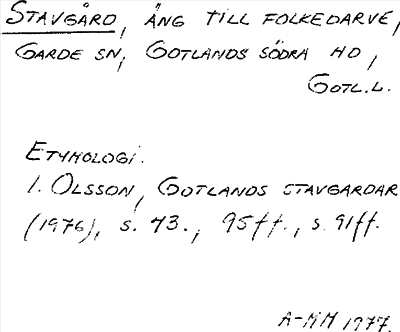 STAVGÅRD, ÄNG TILL FOLKEDARVE,
GARDE SN, GOTLANDS SÖDRA HD,
GOTL.L.
ETYMOLOGI.
I. OLSSON, GOTLANDS STAVGARDAR
(1976), s. 73., 95ff., s. 91ff.
A-MM 1977.